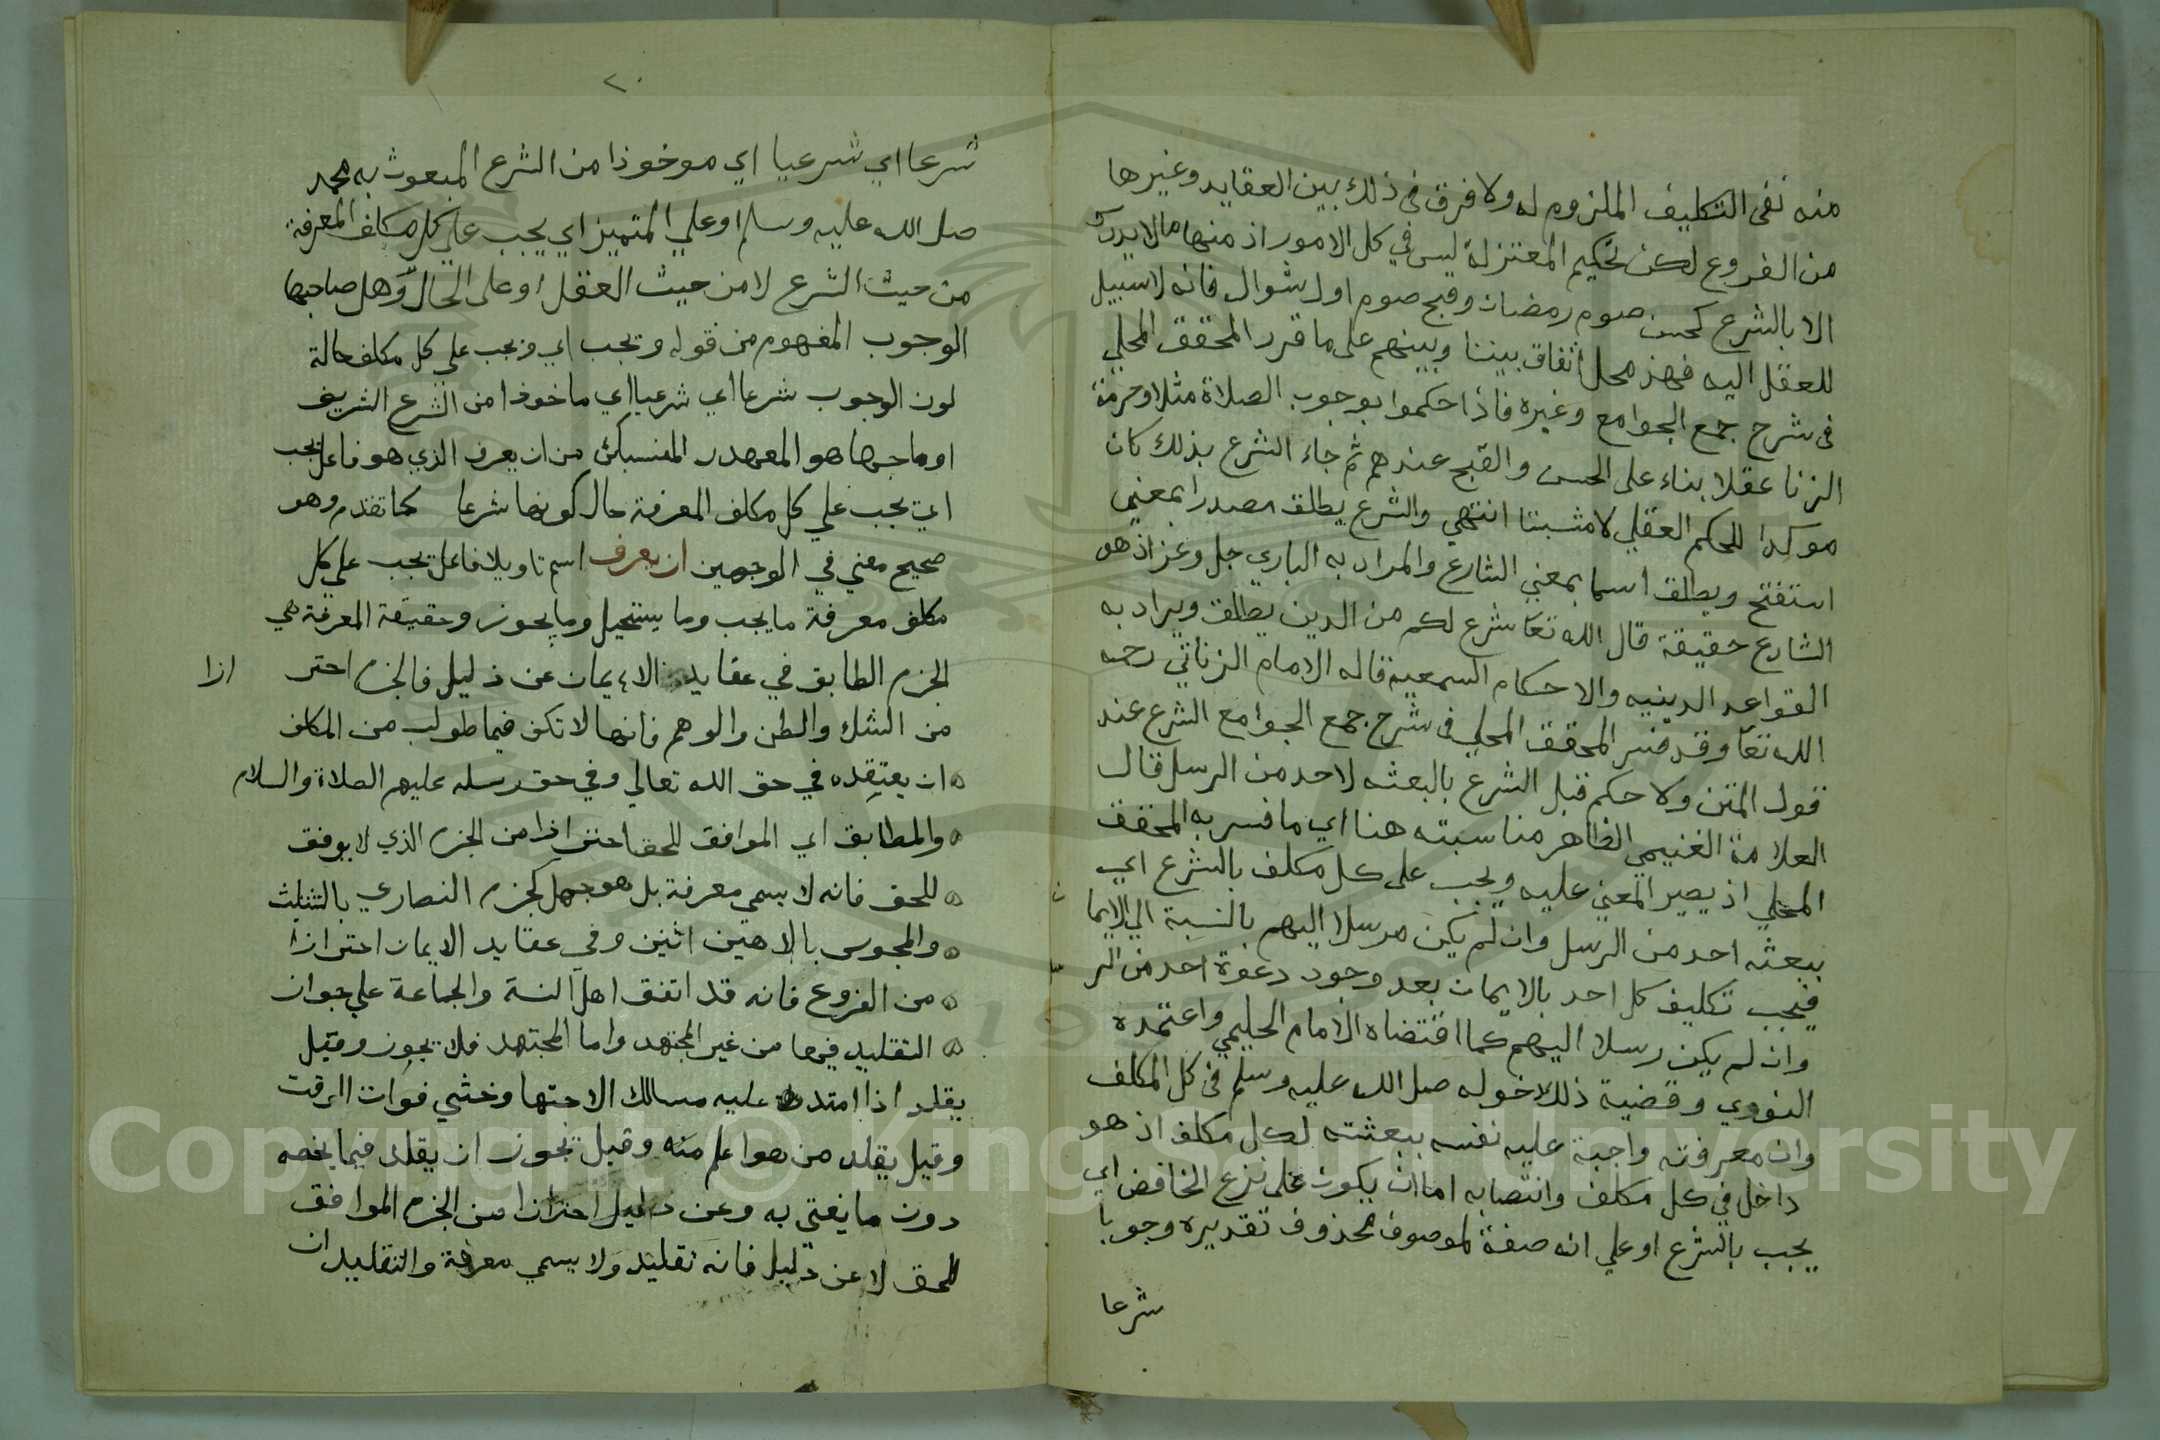 منه نفى التكليف الملزوم له ولا فرق في ذلك بين العقايد وغيرها
من الفروع لكن تحكيم المعتزلة ليس في كل الامور اذ منها ما لا يدرك
الا بالشرع كحسن صوم رمضان وقبح صوم اول شوال فانه لا سبيل
للعقل اليه فهذ محل اتفاق بيننا وبينهم على ما قرر المحقق المحلي
في شرح جمع الجوامع وغيره فاذا حكموا بوجوب الصلاة مثلا وحرمة
الزنا عقلا بناء على الحسن والقبح عندهم ثم جاء الشرع بذلك كان
موكدا للحكم العقلي لا مثبتا انتهي والشرع يطلق مصدرا بمعني
استفتح ويطلق اسما بمعني الشارع والمراد به الباري جل وعز اذ هو
الشارع حقيقة قال الله تعا شرع لكم من الدين يطلق ويراد به
القواعد الدينيه والاحكام السمعية قاله الامام الزناتي رحمه
الله تعا وقد فسر المحقق المحلي في شرح جمع الجوامع الشرع عند
قول المتن ولا حكم قبل الشرع بالبعثه لاحد من الرسل قال
العلامة الغنيمي الظاهر مناسبته هنا اي ما فسر به المحقق
المحلي اذ يصير المعني عليه ويجب على كل مكلف بالشرع اي
ببعثه احد من الرسل وان لم يكن مرسلا اليهم بالنسبة الي الايما
ن
فيجب تكليف كل احد بالايمان بعد وجود دعوة احد من الر
س
وان لم يكن رسلا اليهم كما اقتضاه الامام الحليمي واعتمده
النووي وقضية ذلك دخوله صل الله عليه وسلم في كل المكلف
وان معرفته واجبة عليه نفسه ببعثته لكل مكلف اذ هو
داخل في كل مكلف وانتصابه اما ان يكون على نزع الخافض اي
يجب بالشرع او علي انه صفة لموصوف محذوف تقديره وجوبا
شرعا
٢٠
شرعا اي شرعيا اي موخوذا من الشرع المبعوث به محمد
صل الله عليه وسلم او علي المتميز اي يجب علي كل مكلف المعرفة
من حيث الشرع لا من حيث العقل او على الحال وهل صاحبها
الوجوب المفهوم من قوله ويجب اي ويجب على كل مكلف حالة
لون الوجوب شرعا اي شرعيا اي ماخوذا من الشرع الشريف
او صاحبها هو المصدر المنسبك من ان يعرف الذي هو فاعل يجب
اي يجب علي كل مكلف المعرفة حال كونها شرعا كما تقدم وهو
صحيح معني في الوجهين ان يعرف اسم تاويلا فاعل يجب علي كل
مكلف معرفة ما يجب وما يستحيل وما يجوز وحقيقة المعرفة هي
الجزم الطابق في عقايد الايمان عن دليل فالجزم احتر ازا
من الشك والظن والوهم فانها لا تكن فيما طولب من المكلف
ان يعتقده في حق الله تعالي وفي حق رسله عليهم الصلاة والسلام
والمطابق اي الموافق للحق احترازا من الجزم الذي لا يوفق
للحق فانه لا يسمي معرفة بل هو جهل كجزم النصاري بالتثليث
والمجوس بالاهين اثنين وفي عقايد الايمان احترازا
من الفروع فانه قد اتفق اهل السنة والجماعة علي جوان
التقليد فيها من غير المجتهد واما المجتهد فلا يجوز وقيل
يقلد اذا امتدت عليه مسالك الاجتها وخشي فوات الوقت
وقيل يقلد من هو اعلم منه وقيل يجوز ان يقلد فيما يخصه
دون ما يفتي به وعن دليل احترازا من الجزم الموافق
للحق لا عن دليل فانه تقليد ولا يسمي معرفة والتقليد ان
Copyright © King Saud University